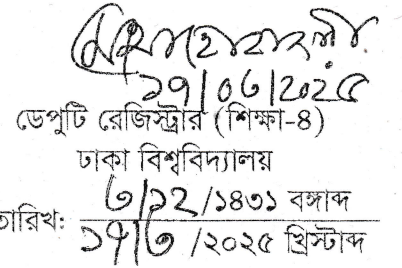 ১৭/০৩/২০২৫
ডেপুটি রেজিস্ট্রার (শিক্ষা-৪)
ঢাকা বিশ্ববিদ্যালয়
তারিখ: ৩/১২/১৪৩১ বঙ্গাব্দ
১৭/৩/২০২৫ খ্রিস্টাব্দ